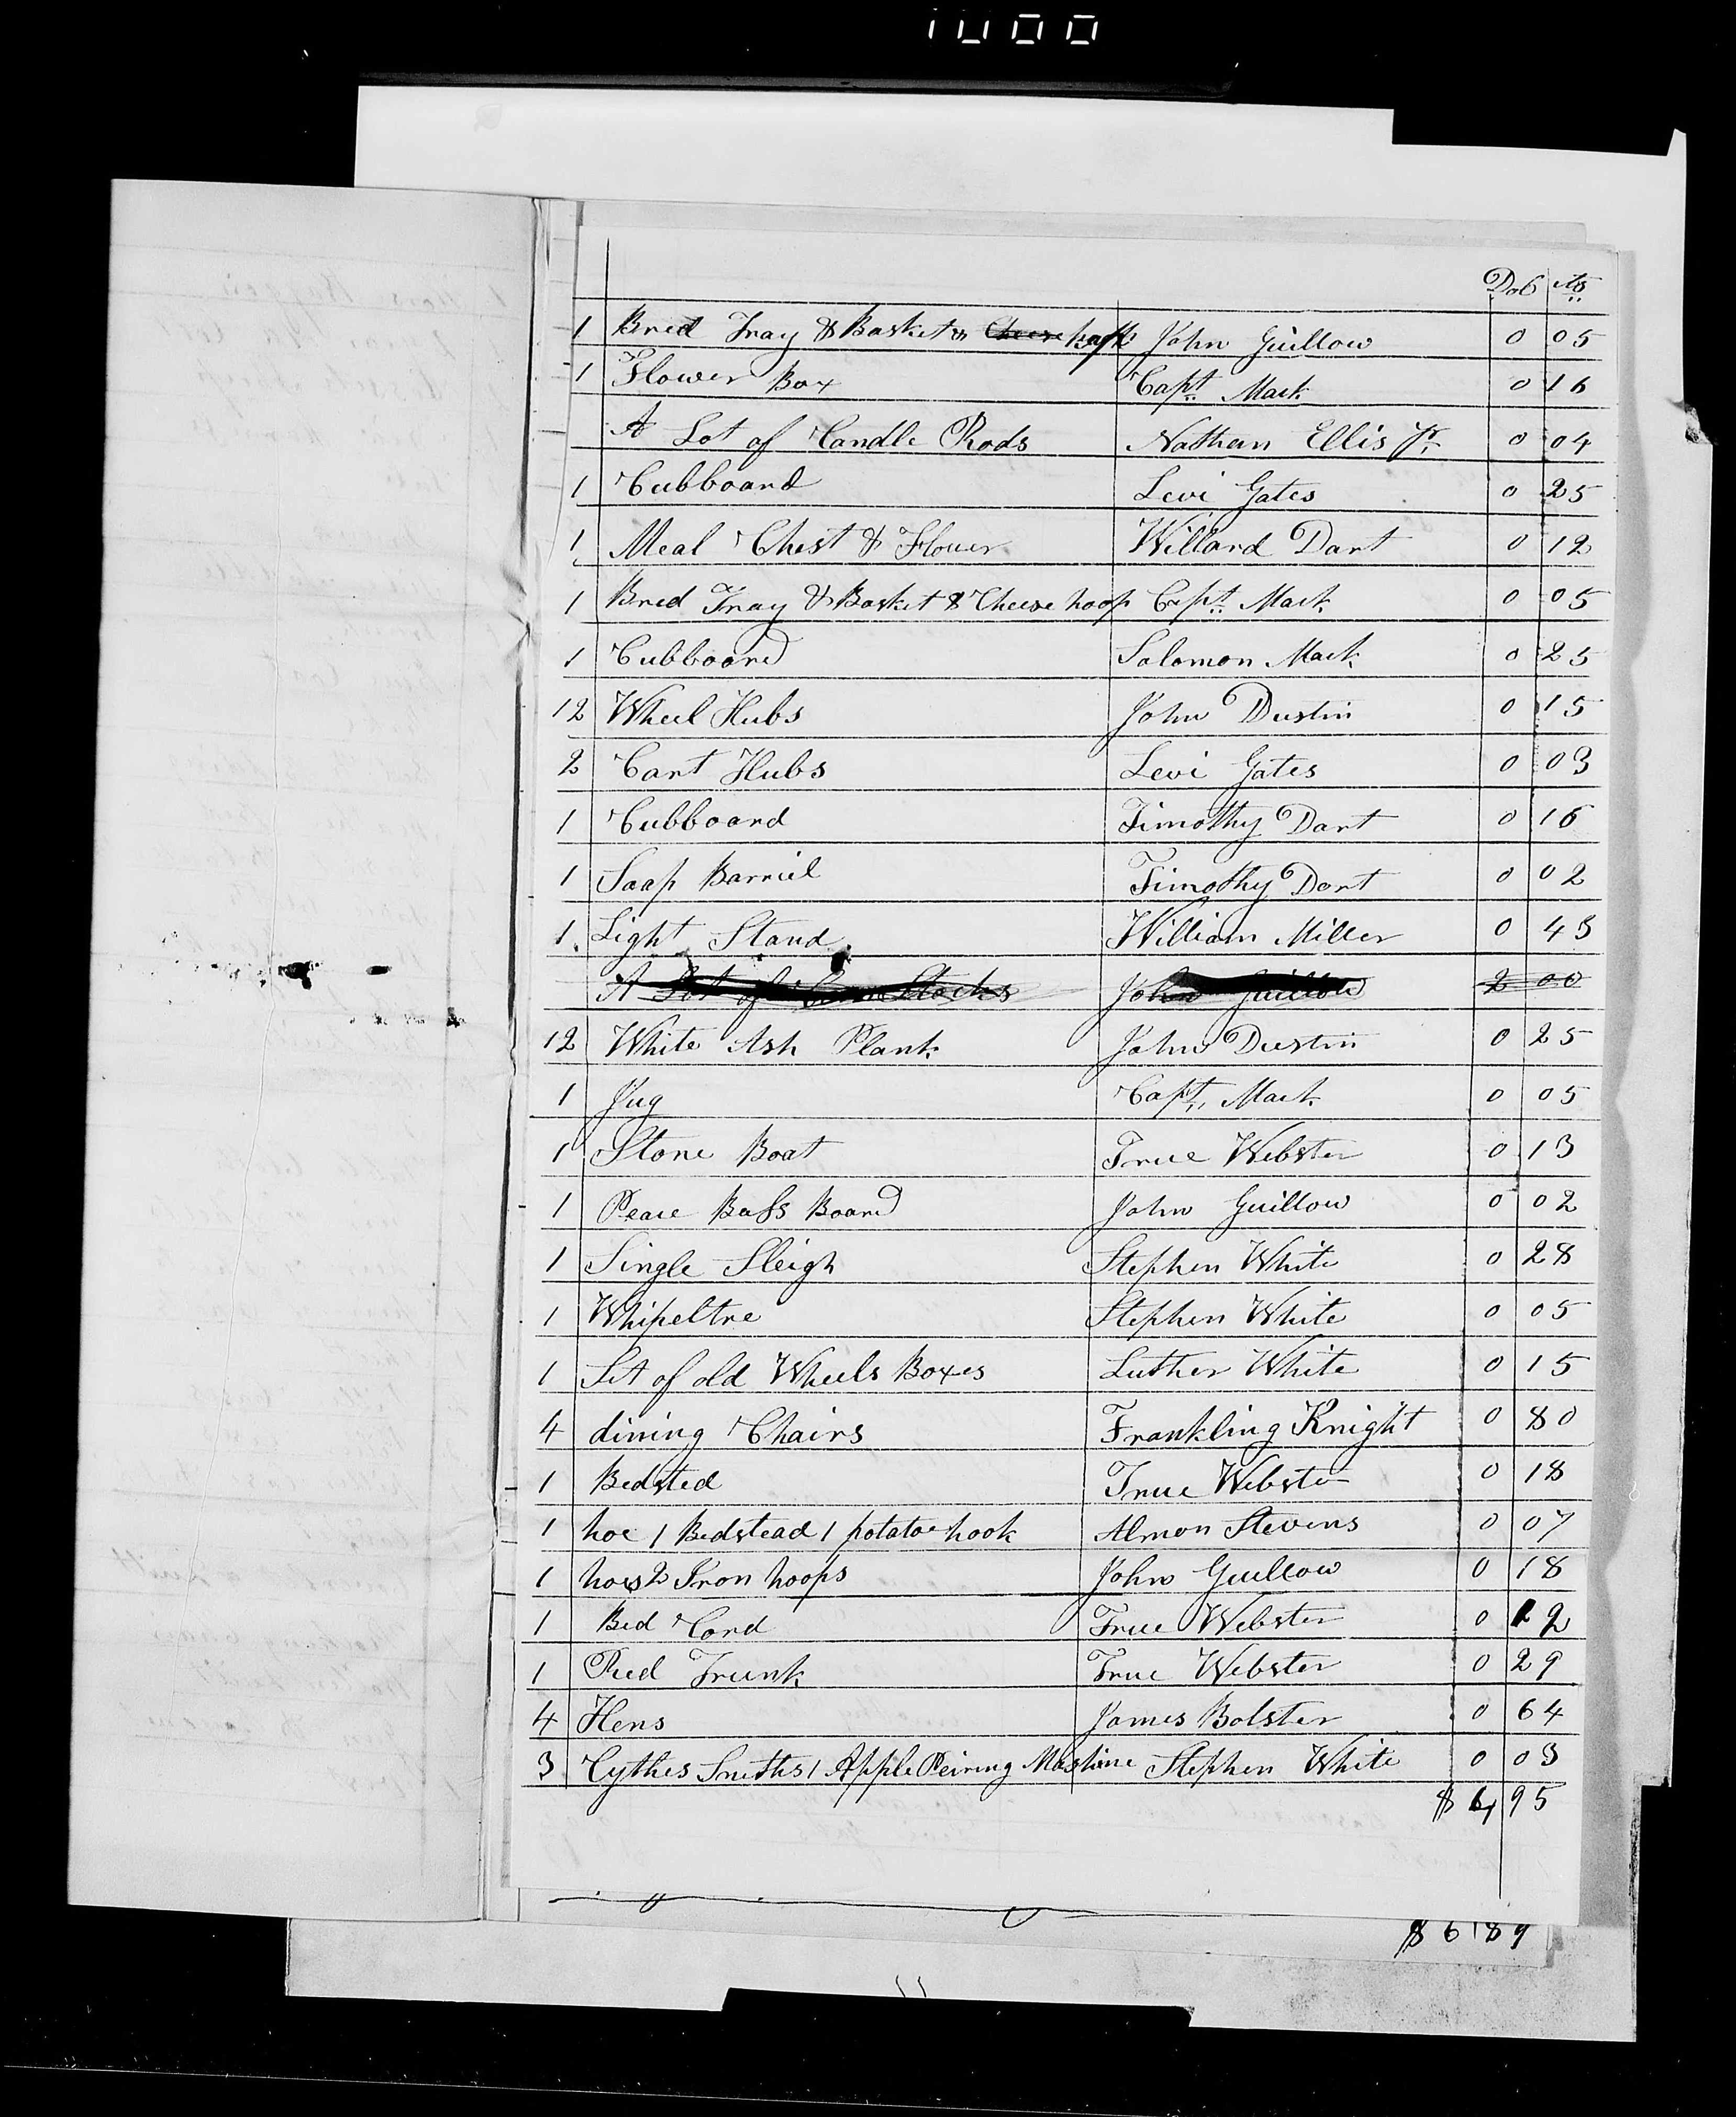 1000
Dols Cts
1 Bred Tray & Basket & Cheese hoop John Guillow 0 05
1 Flower Box Capt Mack 0 16
A Lot of Candle Rods Nathan Ellis Jr 0 04
1 Cubboard Levi Gates 0 25
1 Meal Chest & Flouer Willard Dart 0 12
1 Bred Tray & Basket & Cheese hoop Capt Mack 0 05
1 Cubboard Solomon Mack 0 25
12 Wheel Hubs John Dustin 0 15
2 Cart Hubs Levi Gates 0 03
1 Cubboard Timothy Dart 0 16
1 Soap Barriel Timothy Dart 0 02
1 Light Stand William Miller 0 43
A Lot of Corn Stocks John Guillow 2 00
12 White Ash Plank John Dustin 0 25
1 Jug Capt Mack 0 05
1 Stone Boat True Webster 0 13
1 Peace Bass Board John Guillow 0 02
1 Single Sleigh Stephen White 0 28
1 Whipeltre Stephen White 0 05
1 Set of old Wheels Boxes Luther White 0 15
4 dining Chairs Frankling Knight 0 80
1 Bedsted True Webster 0 18
1 hoe 1 Bedstead 1 potatoe hook Almon Stevens 0 07
1 hoes 2 Iron hoops John Guillow 0 18
1 Bed Cord True Webster 0 12
1 Red Trunk True Webster 0 29
4 Hens James Bolster 0 64
3 Cythes Sneths 1 Apple Peiring Mashine Stephen White 0 03
$ 4 95
$ 6 89